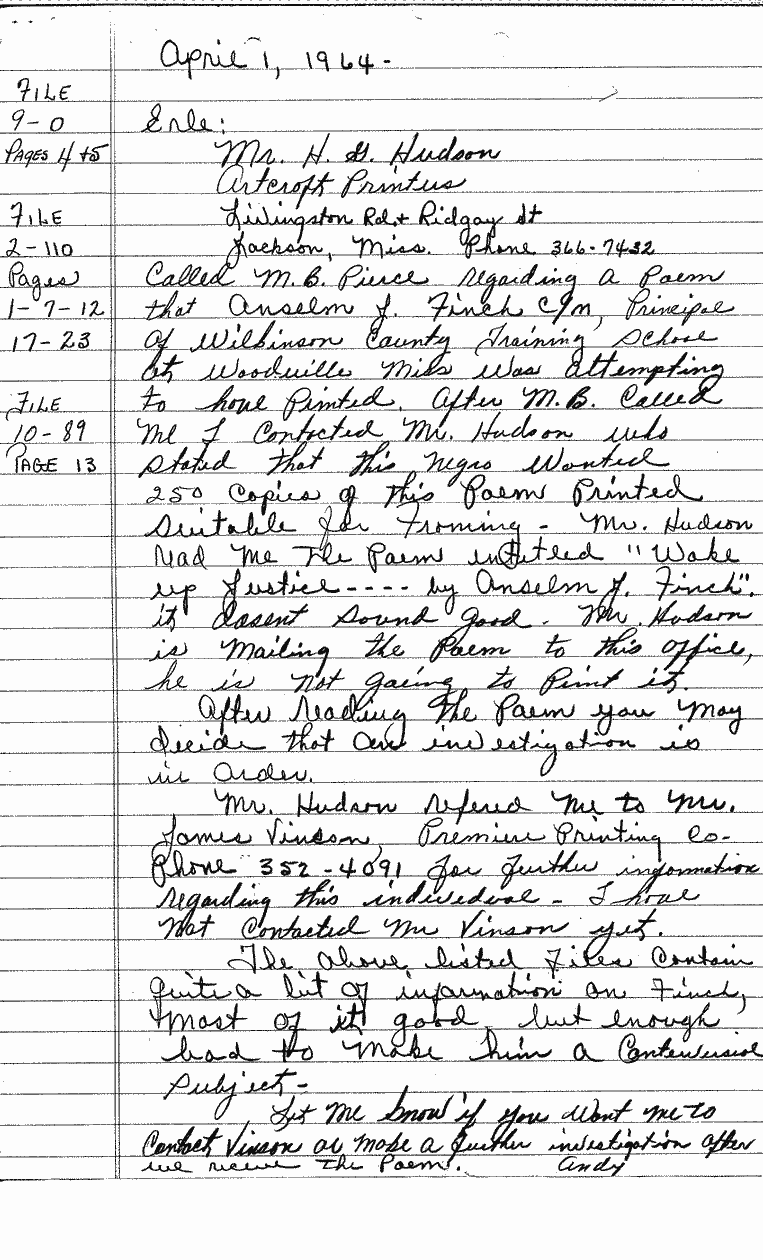 April 1, 1964-
FILE
9-0
PAGES 4+5
FILE
2-110
Pages
1-7-12
17-23
FILE
10-89
PAGE 13
Erle:
Mr. H. G. Hudson
Artcroft Printers
Livingston Rd + Ridgay St
Jackson, Miss. Phone 366-7432
Called M.B. Pierce regarding a Poem
that Anselm J. Finch C/M, Principal
of Wilkinson County Training School
at Woodville Miss was attempting
to have Printed. After M.B. Called
me I Contacted Mr. Hudson who
stated that this negro Wanted
250 Copies of this Poem Printed
Suitable for Framing - Mr. Hudson
read me The Poem entitled "Wake
up Justice---- by Anselm J. Finch".
it dosent sound good. Mr. Hudson
is mailing the Poem to this office,
he is not going to Print it.
After reading The Poem you may
decide that an investigation is
in Order.
Mr. Hudson refered me to Mr.
James Vinson, Premiere Printing Co-
Phone 352-4091 for further information
regarding this individual - I have
not Contacted Mr Vinson yet.
The above listed Files Contain
quite a bit of information on Finch,
most of it good, but enough
bad to make him a Contervisial
Subject-
Let me know if you want me to
Contact Vinson or make a further investigation after
we receive The Poem. Andy